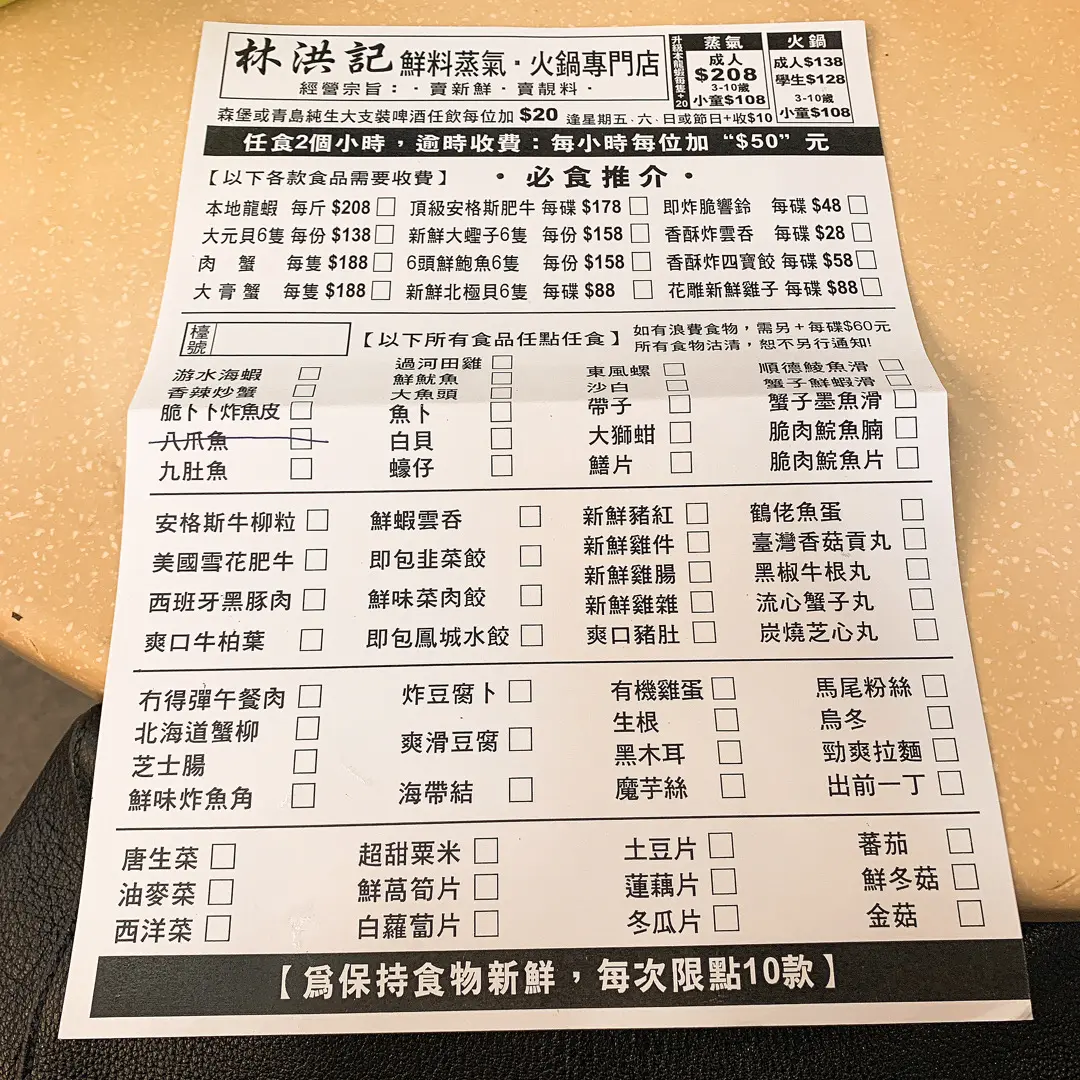 林洪記 鮮料蒸氣·火鍋專門店
經營宗旨：·賣新鮮·賣靚料·
升級本龍蝦每隻+20
蒸氣
成人
$208
3-10歲
小童$108
火鍋
成人$138
學生$128
3-10歲
小童$108
森堡或青島純生大支裝啤酒任飲每位加 $20 逢星期五·六·日或節日+收$10
任食2個小時，逾時收費：每小時每位加 “$50” 元
【以下各款食品需要收費】 ·必食推介·
本地龍蝦 每斤 $208 頂級安格斯肥牛 每碟 $178 即炸脆響鈴 每碟 $48
大元貝6隻 每份 $138 新鮮大蟶子6隻 每份 $158 香酥炸雲吞 每碟 $28
肉蟹 每隻 $188 6頭鮮鮑魚6隻 每份 $158 香酥炸四寶餃 每碟 $58
大膏蟹 每隻 $188 新鮮北極貝6隻 每碟 $88 花雕新鮮雞子 每碟 $88
檯號 【以下所有食品任點任食】 如有浪費食物，需另+每碟$60元
所有食物沽清，恕不另行通知!
游水海蝦 過河田雞 東風螺 順德鯪魚滑
香辣炒蟹 鮮魷魚 沙白 蟹子鮮蝦滑
脆卜卜炸魚皮 大魚頭 帶子 蟹子墨魚滑
八爪魚 魚卜 大獅蚶 脆肉鯇魚腩
九肚魚 白貝 鱔片 脆肉鯇魚片
蠔仔
安格斯牛柳粒 鮮蝦雲吞 新鮮豬紅 鶴佬魚蛋
美國雪花肥牛 即包韭菜餃 新鮮雞件 臺灣香菇貢丸
西班牙黑豚肉 鮮味菜肉餃 新鮮雞腸 黑椒牛根丸
爽口牛柏葉 即包鳳城水餃 新鮮雞雜 流心蟹子丸
爽口豬肚 炭燒芝心丸
冇得彈午餐肉 炸豆腐卜 有機雞蛋 馬尾粉絲
北海道蟹柳 爽滑豆腐 生根 烏冬
芝士腸 海帶結 黑木耳 勁爽拉麵
鮮味炸魚角 魔芋絲 出前一丁
唐生菜 超甜粟米 土豆片 蕃茄
油麥菜 鮮萵筍片 蓮藕片 鮮冬菇
西洋菜 白蘿蔔片 冬瓜片 金菇
【為保持食物新鮮，每次限點10款】